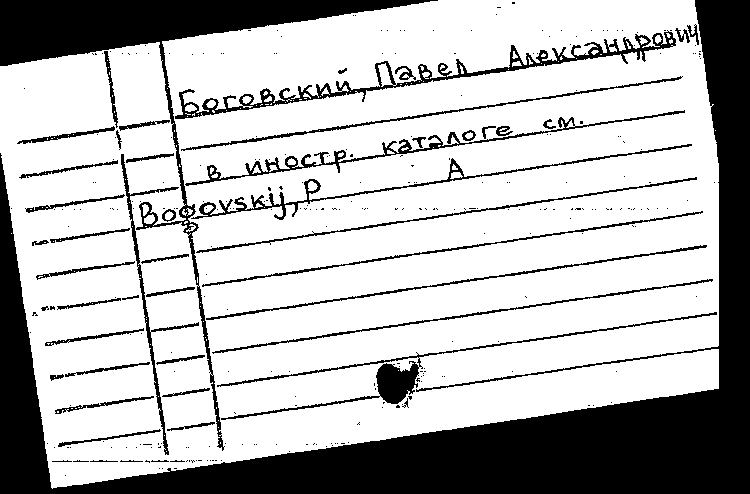 Боговский, Павел Александрович
в иностр. каталоге см.
Bogovskij, P A